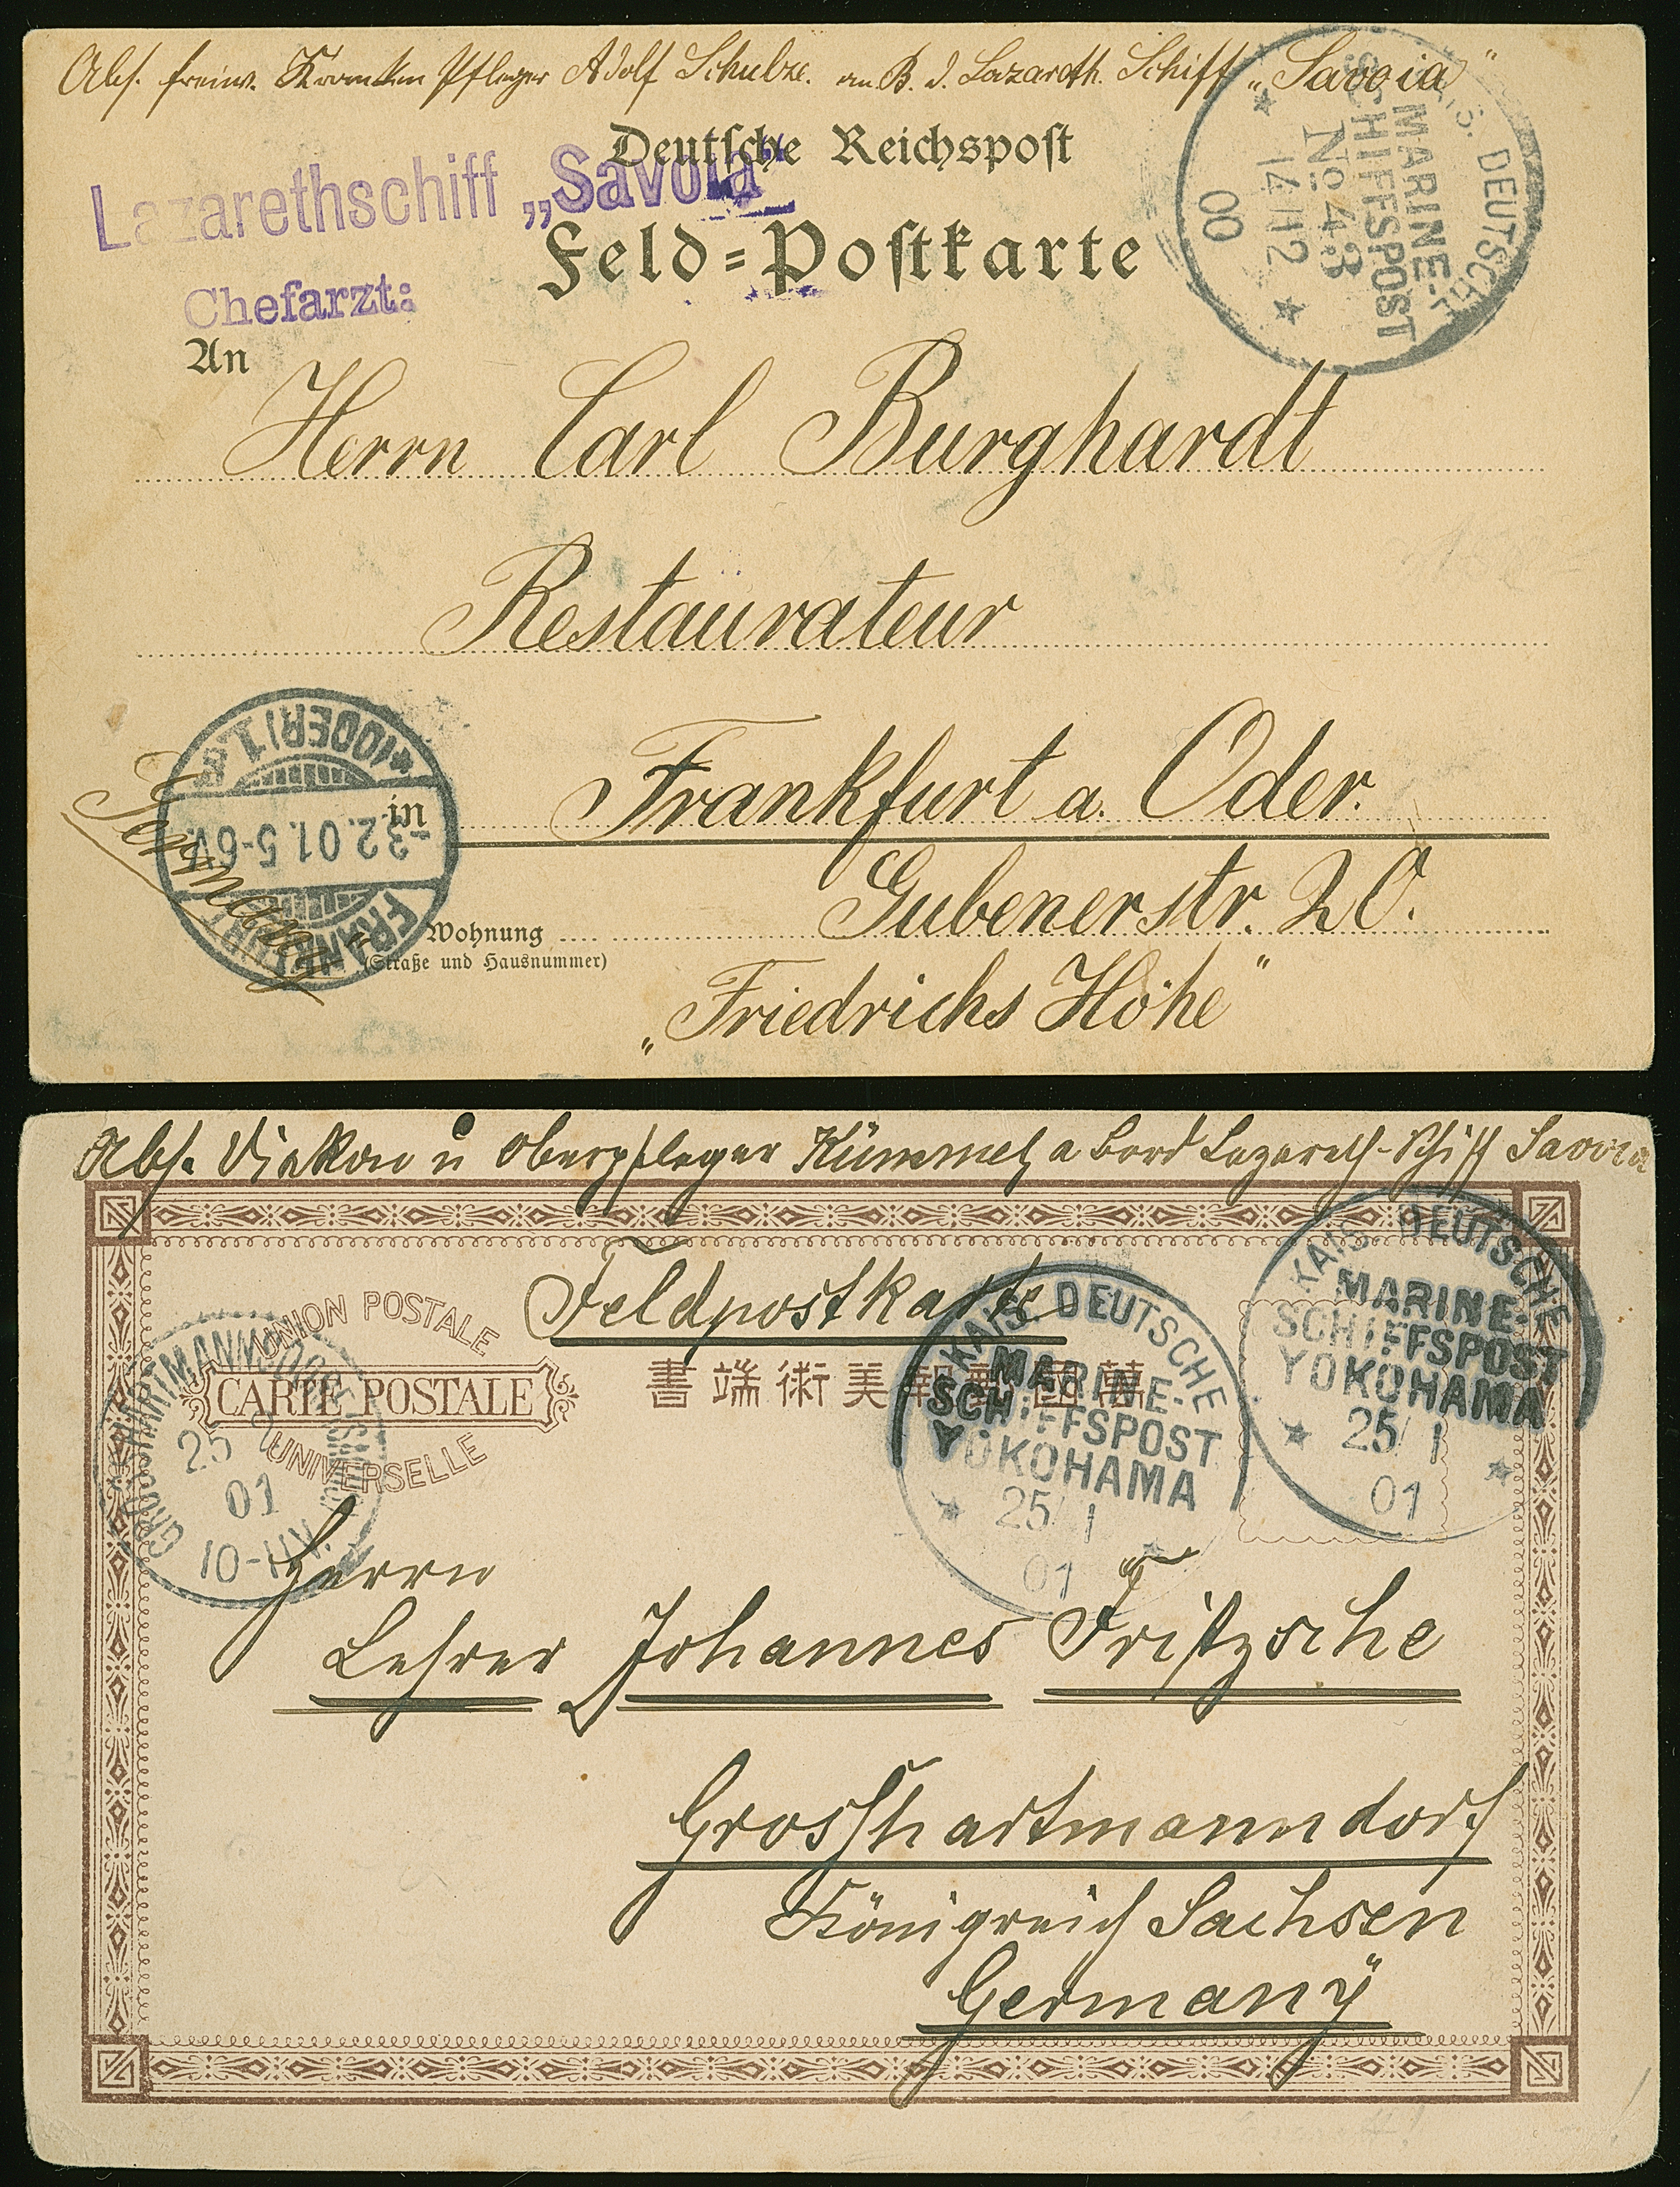 Abs. freiw. Kranken Pfleger Adolf Schulze. an B. d. Lazareth. Schiff „Savoia"
Deutsche Reichspost
Lazarethschiff „Savoia"
Feld=Postkarte
Chefarzt:
KAIS. DEUTSCHE
MARINE-
SCHIFFSPOST
No 43
14/12
00
An
Herrn Carl Burghardt
Restaurateur
in Frankfurt a. Oder.
Wohnung Gubenerstr. 20.
(Straße und Hausnummer)
„Friedrichs Höhe"
Germany
FRANKFURT
-3.2.01.5-6V.
*(ODER)1
Abs. Diakon u Oberpfleger Kümmel, a Bord Lazareth-Schiff Savoia
Feldpostkarte
UNION POSTALE
CARTE POSTALE
UNIVERSELLE
書端術美報畫國萬
KAIS. DEUTSCHE
MARINE-
SCHIFFSPOST
YOKOHAMA
25/1
01
KAIS. DEUTSCHE
MARINE-
SCHIFFSPOST
YOKOHAMA
25/1
01
25
01
10-11V.
Herrn
Lehrer Johannes Fritzsche
Grosshartmanndorf
Königreich Sachsen
Germany